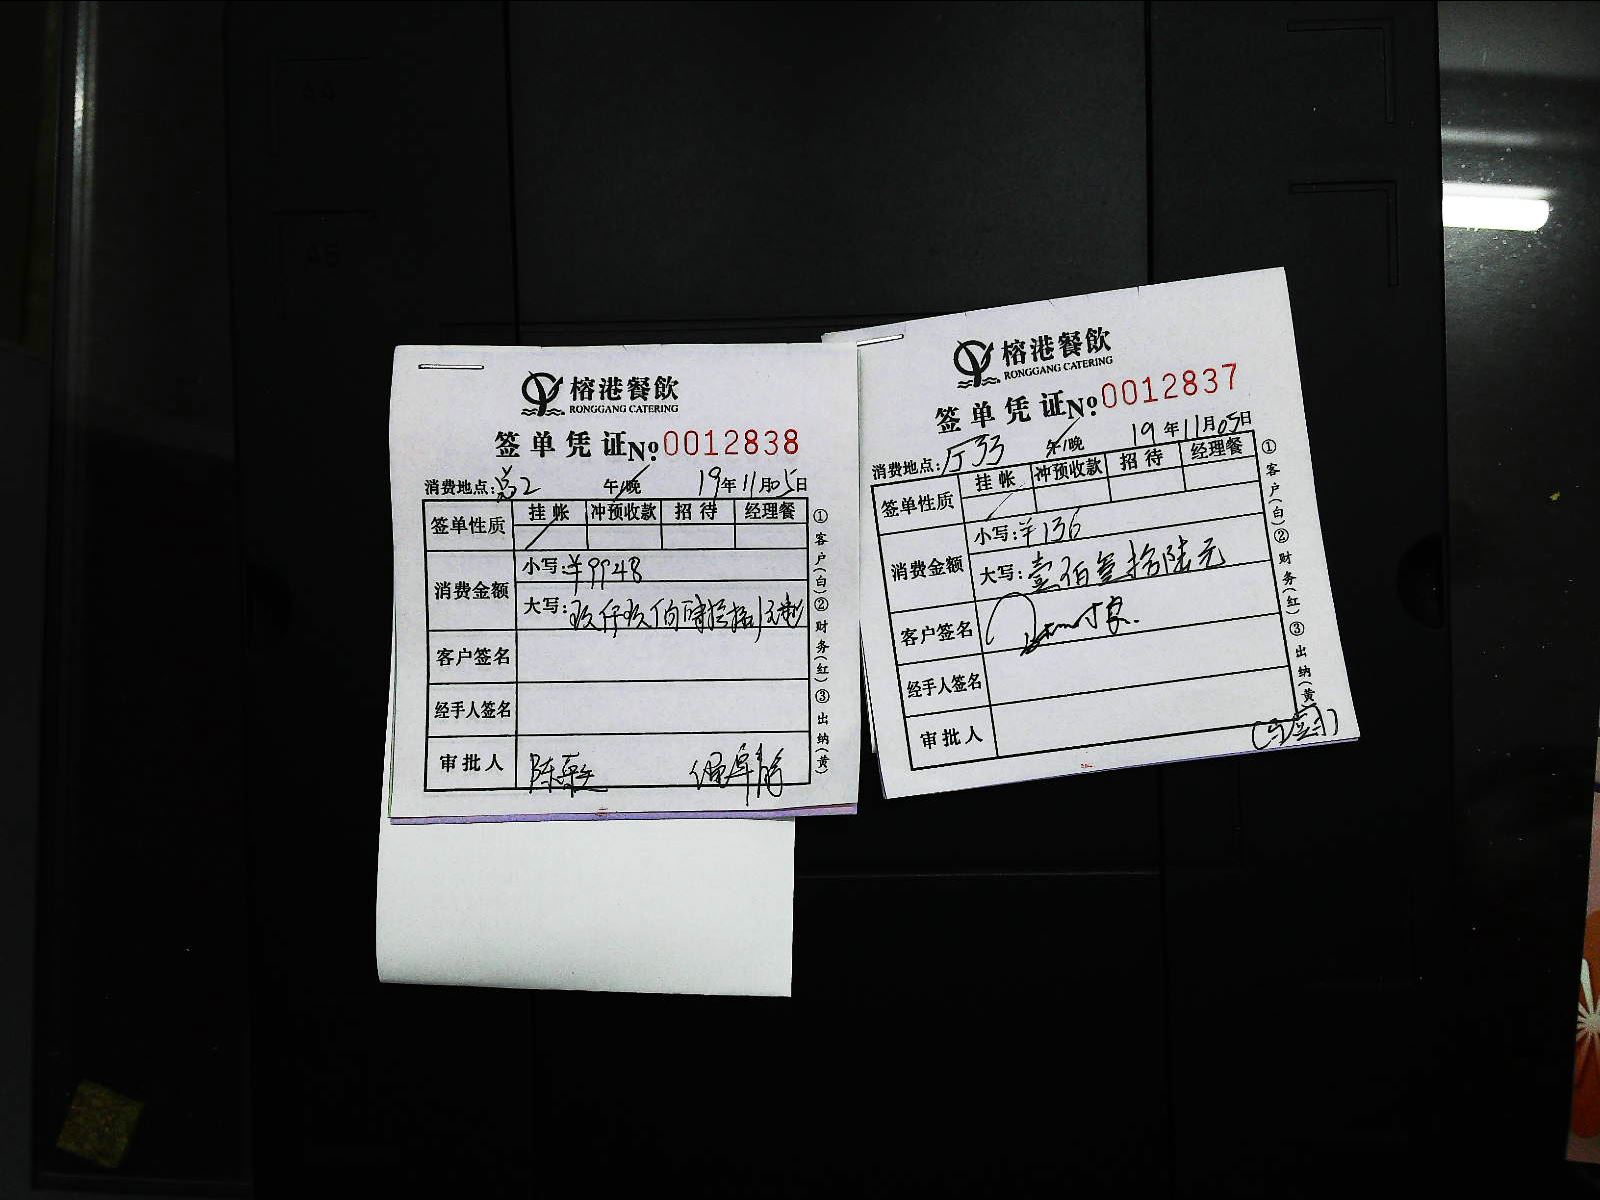 榕港餐飲
RONGGANG CATERING
签单凭证 №0012838
消费地点: 2 午/晚 19年11月05日
签单性质 挂帐 冲预收款 招待 经理餐
消费金额 小写:¥9948
大写:玖仟玖佰肆拾捌元整
客户签名
经手人签名
审批人
①客户(白)②财务(红)③出纳(黄)
榕港餐飲
RONGGANG CATERING
签单凭证 №0012837
消费地点:厅33 午/晚 19年11月05日
签单性质 挂帐 冲预收款 招待 经理餐
消费金额 小写:¥136
大写:壹佰叁拾陆元
客户签名
经手人签名
审批人
①客户(白)②财务(红)③出纳(黄)
A4
A5